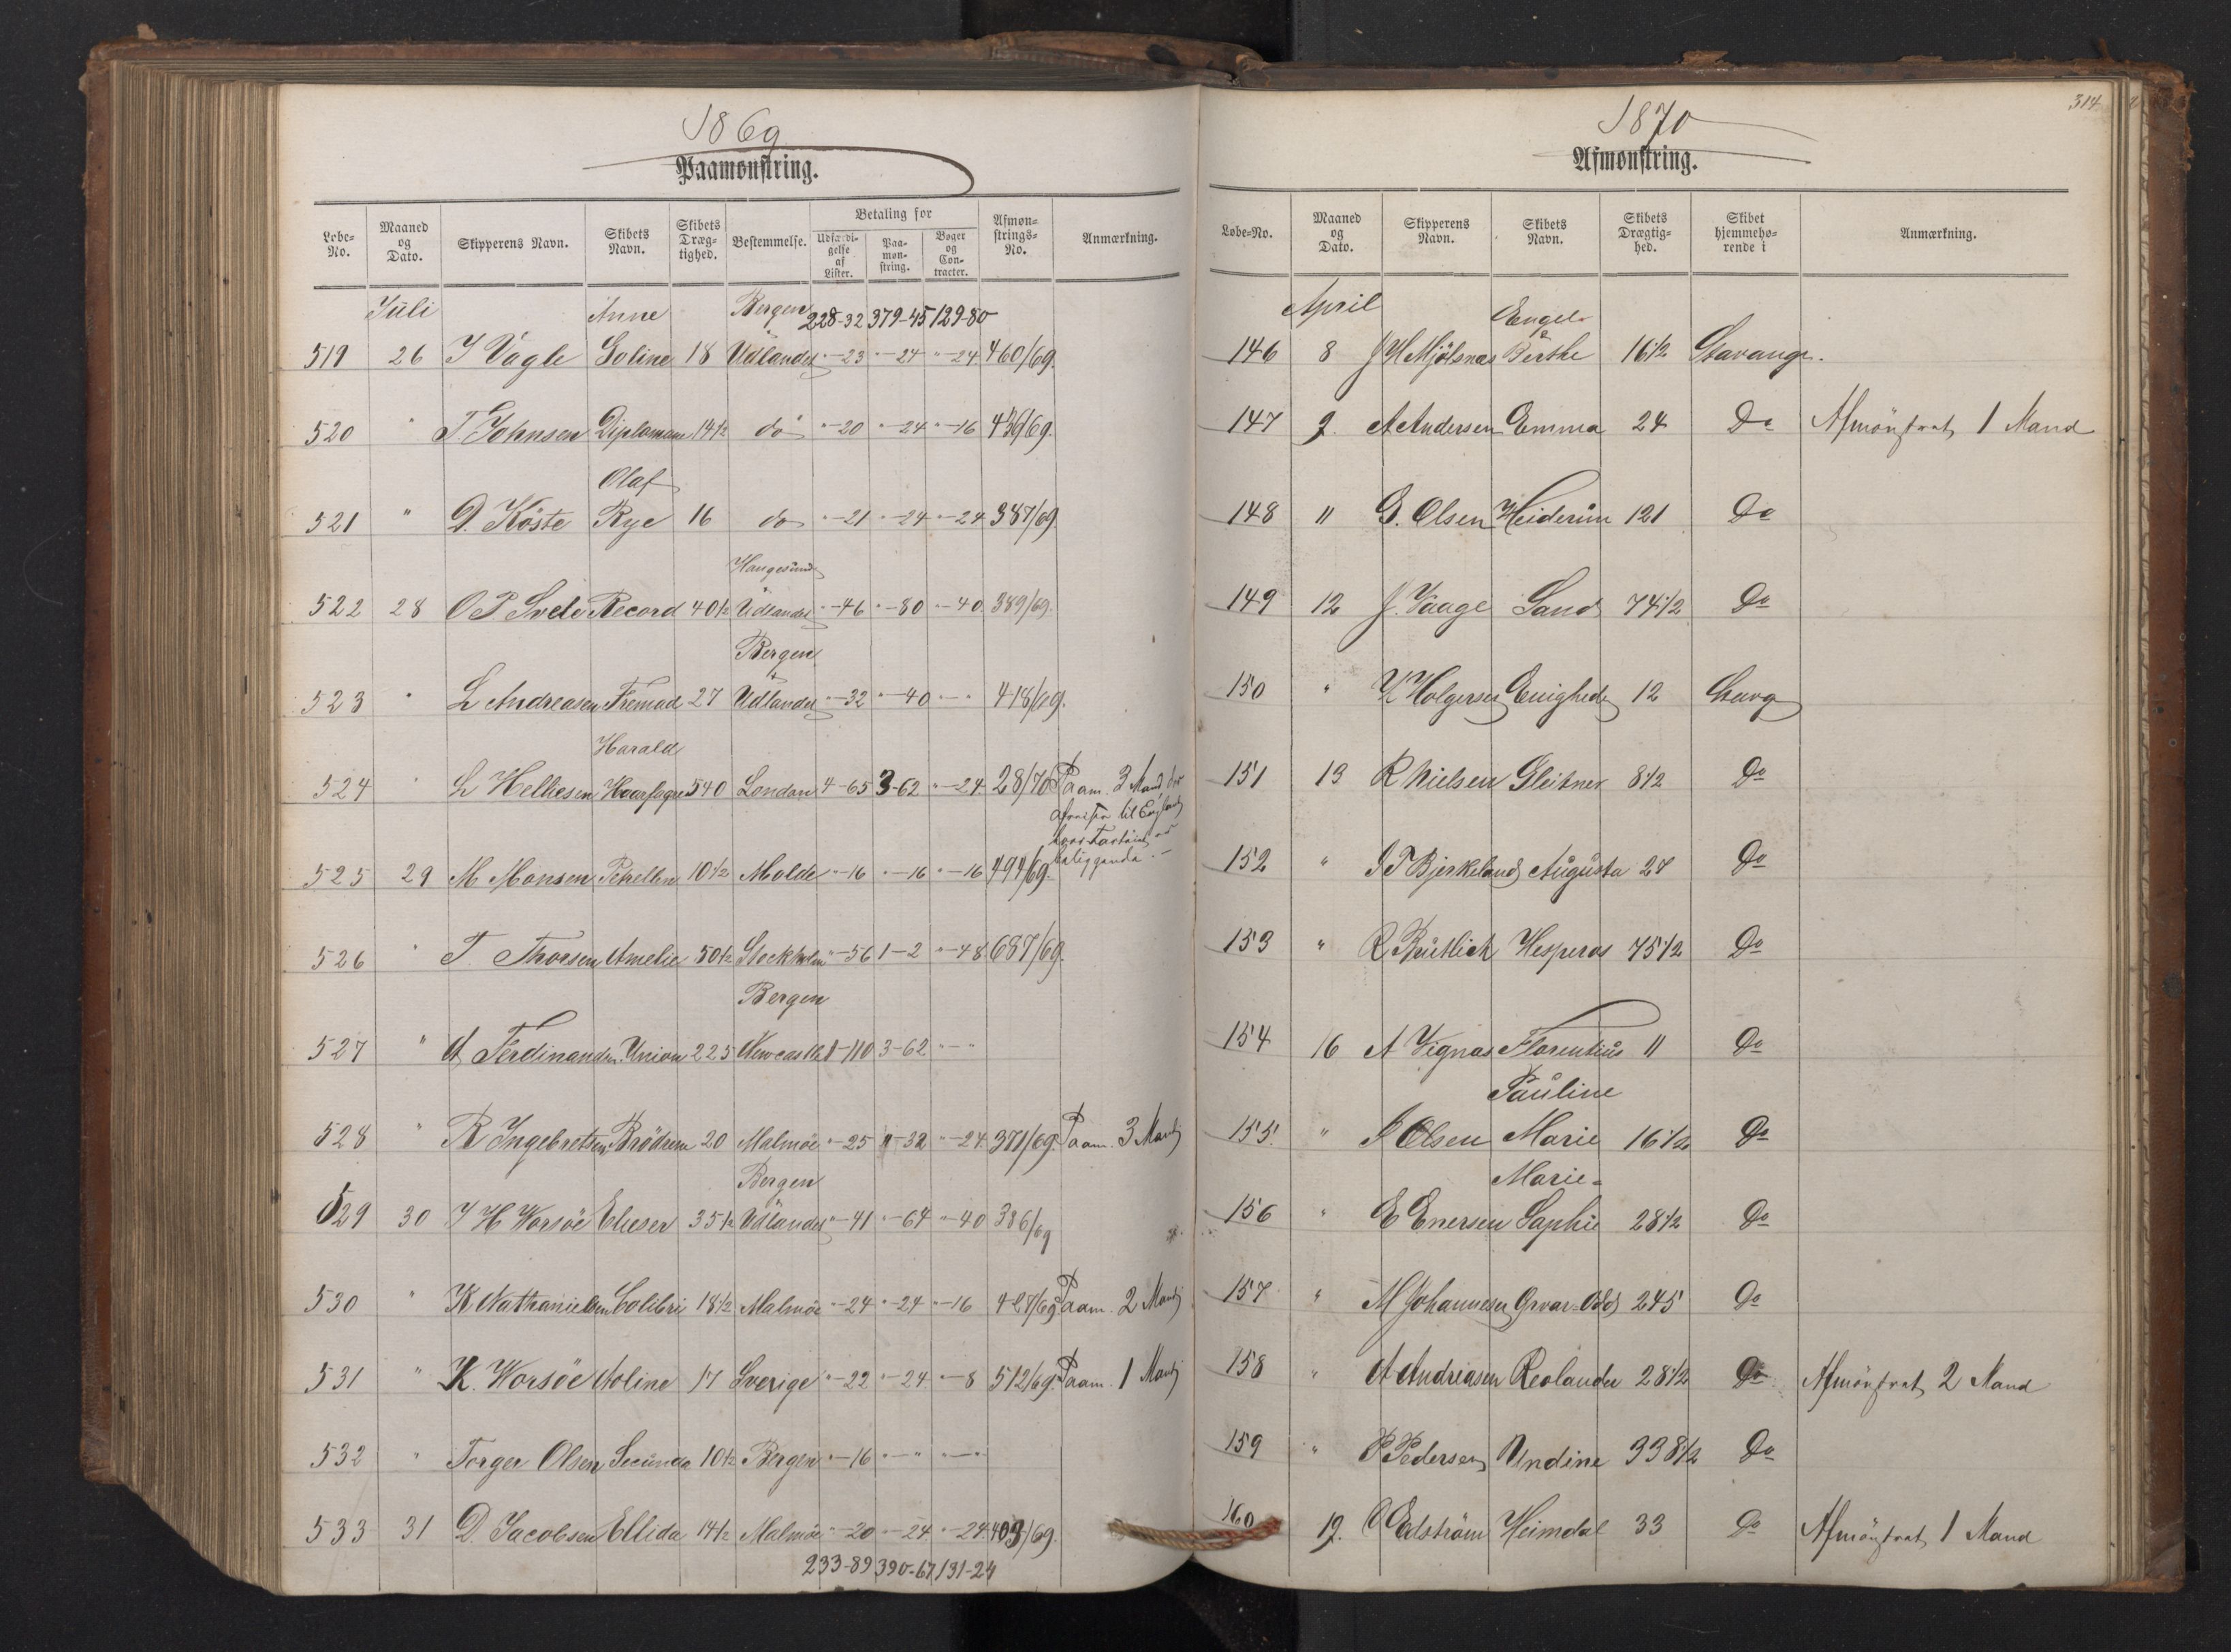 1869
Paamønstring.
Løbe-No. Maaned og Dato. Skipperens Navn. Skibets Navn. Skibets Dræg-tighed. Bestemmelse. Betaling for Udfærdi-gelse af Lister. Paa-møn-string. Bøger og Con-tracter. Afmøn-strings-No. Anmærkning.
Juli Anne Bergen 228-32 379-45 129-80
519 26 J Vagle Goline 18 Udlandet "-23 "-24 "-24 460/69.
520 " T. Johnsen Diplomum 14 1/2 do "-20 "-24 "-16 436/69.
Olaf
521 " D. Köste Rye 16 do "-21 "-24 "-24 387/69
Haugesund
522 28 O P Svele Record 40 1/2 Udlandet "-46 "-80 "-40 389/69.
Bergen
523 " L Andreasen Fremad 27 Udlandet "-32 "-40 "-" 418/69.
Harald
524 " L Helliesen Haarfagre 540 London 4-65 3-62 "-24 28/70 Paam. 3 Mand
til England
beliggende.
525 29 M Monsen Petrellen 10 1/2 Molde "-16 "-16 "-16 494/69.
526 " T. Thorsen Amelie 50 1/2 Stockholm "-56 1-2 "-48 687/69.
Bergen
527 " A Ferdinandsen Union 225 Newcastle 1-110 3-62 "-"
528 " R Ingebretsen Brödrene 20 Malmöe "-25 "-32 "-24 371/69. Paam. 3 Mand
Bergen
529 30 J H Worsöe Elieser 35 1/2 Udlandet "-41 "-64 "-40 386/69
530 " K Nathanielsen Colibri 18 1/2 Malmöe "-24 "-24 "-16 427/69 Paam. 2 Mand
531 " K. Worsöe Aoline 17 Sverige "-22 "-24 "-8 512/69. Paam. 1 Mand
532 " Torger Olsen Secunda 10 1/2 Bergen "-16 "-" "-"
533 31 D. Jacobsen Ellida 14 1/2 Malmöe "-20 "-24 "-24 403/69.
233-89 390-67 131-24
314
1870
Afmønstring.
Løbe-No. Maaned og Dato. Skipperens Navn. Skibets Navn. Skibets Drægtig-hed. Skibet hjemmehø-rende i Anmærkning.
April Engel
146 8 J H Mjölsnes Berthe 16 1/2 Stavanger.
147 9. A Andersen Emma 24 Do Afmönstret 1 Mand
148 " G. Olsen Heiderün 121 Do
149 12 J. Vaage Sand 74 1/2 Do
150 " Holgersen Enighed 12 Stavg
151 13 R Nielsen Gleitner 8 1/2 Do
152 " J T Bjerkeland Augusta 27 Do
153 " R Prütlich Hesperos 75 1/2 Do
154 16 A Vignas Florentius 11 Do
Pauline
155. " J Olsen Marie 16 1/2 Do
Marie-
156 " E Enersen Sophie 28 1/2 Do
157 " M Johannesen Orvar-Odd 245 Do
158 " A Andreasen Reolander 28 1/2 Do Afmönstret 2 Mand
159 " P Pedersen Undine 338 1/2 Do
160 19. O Edström Heimdal 33 Do Afmönstret 1 Mand